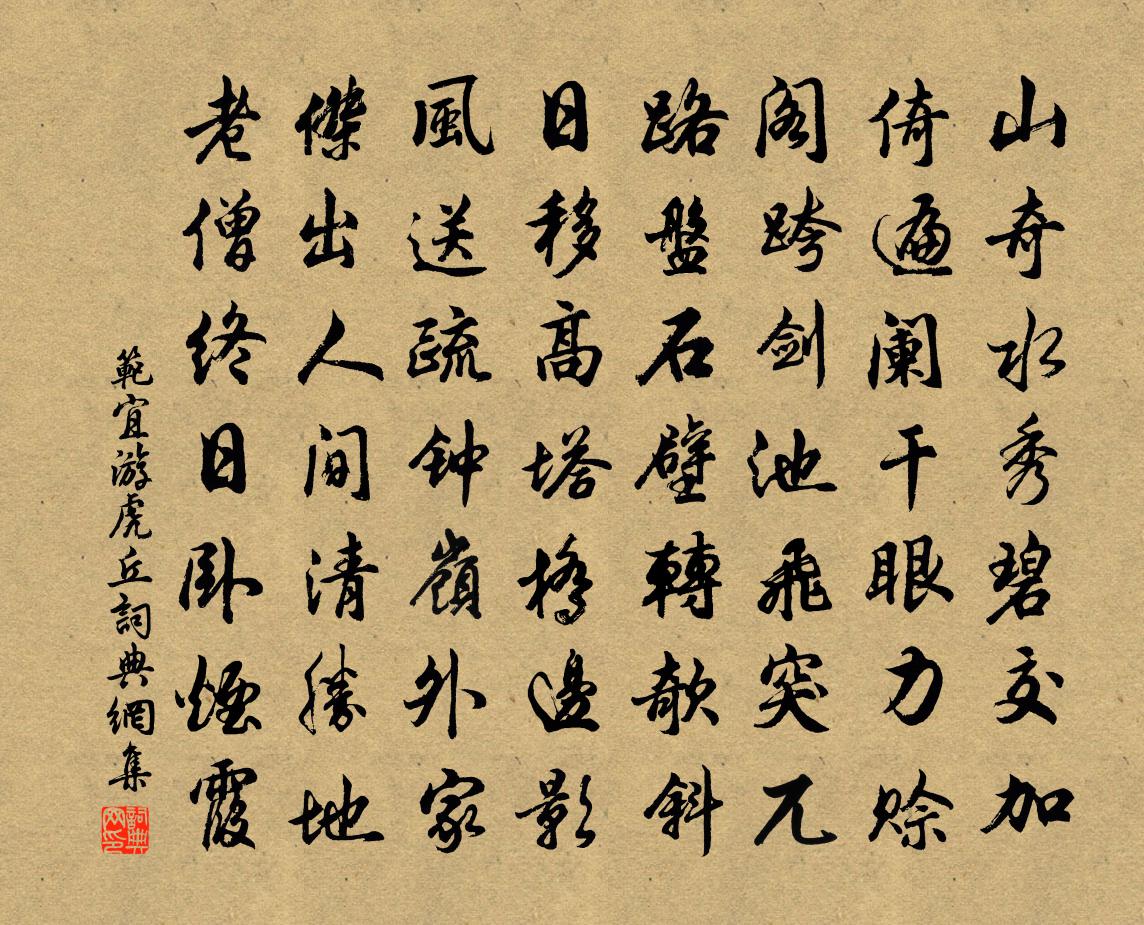 山奇水秀碧交加
倚遍阑干眼力赊
阁跨剑池飛突兀
路盤石壁轉欹斜
日移高塔橋邊影
風送疏钟嶺外家
傑出人间清勝地
老僧终日卧煙霞
範宜游虎丘詞典網集
詞典网印